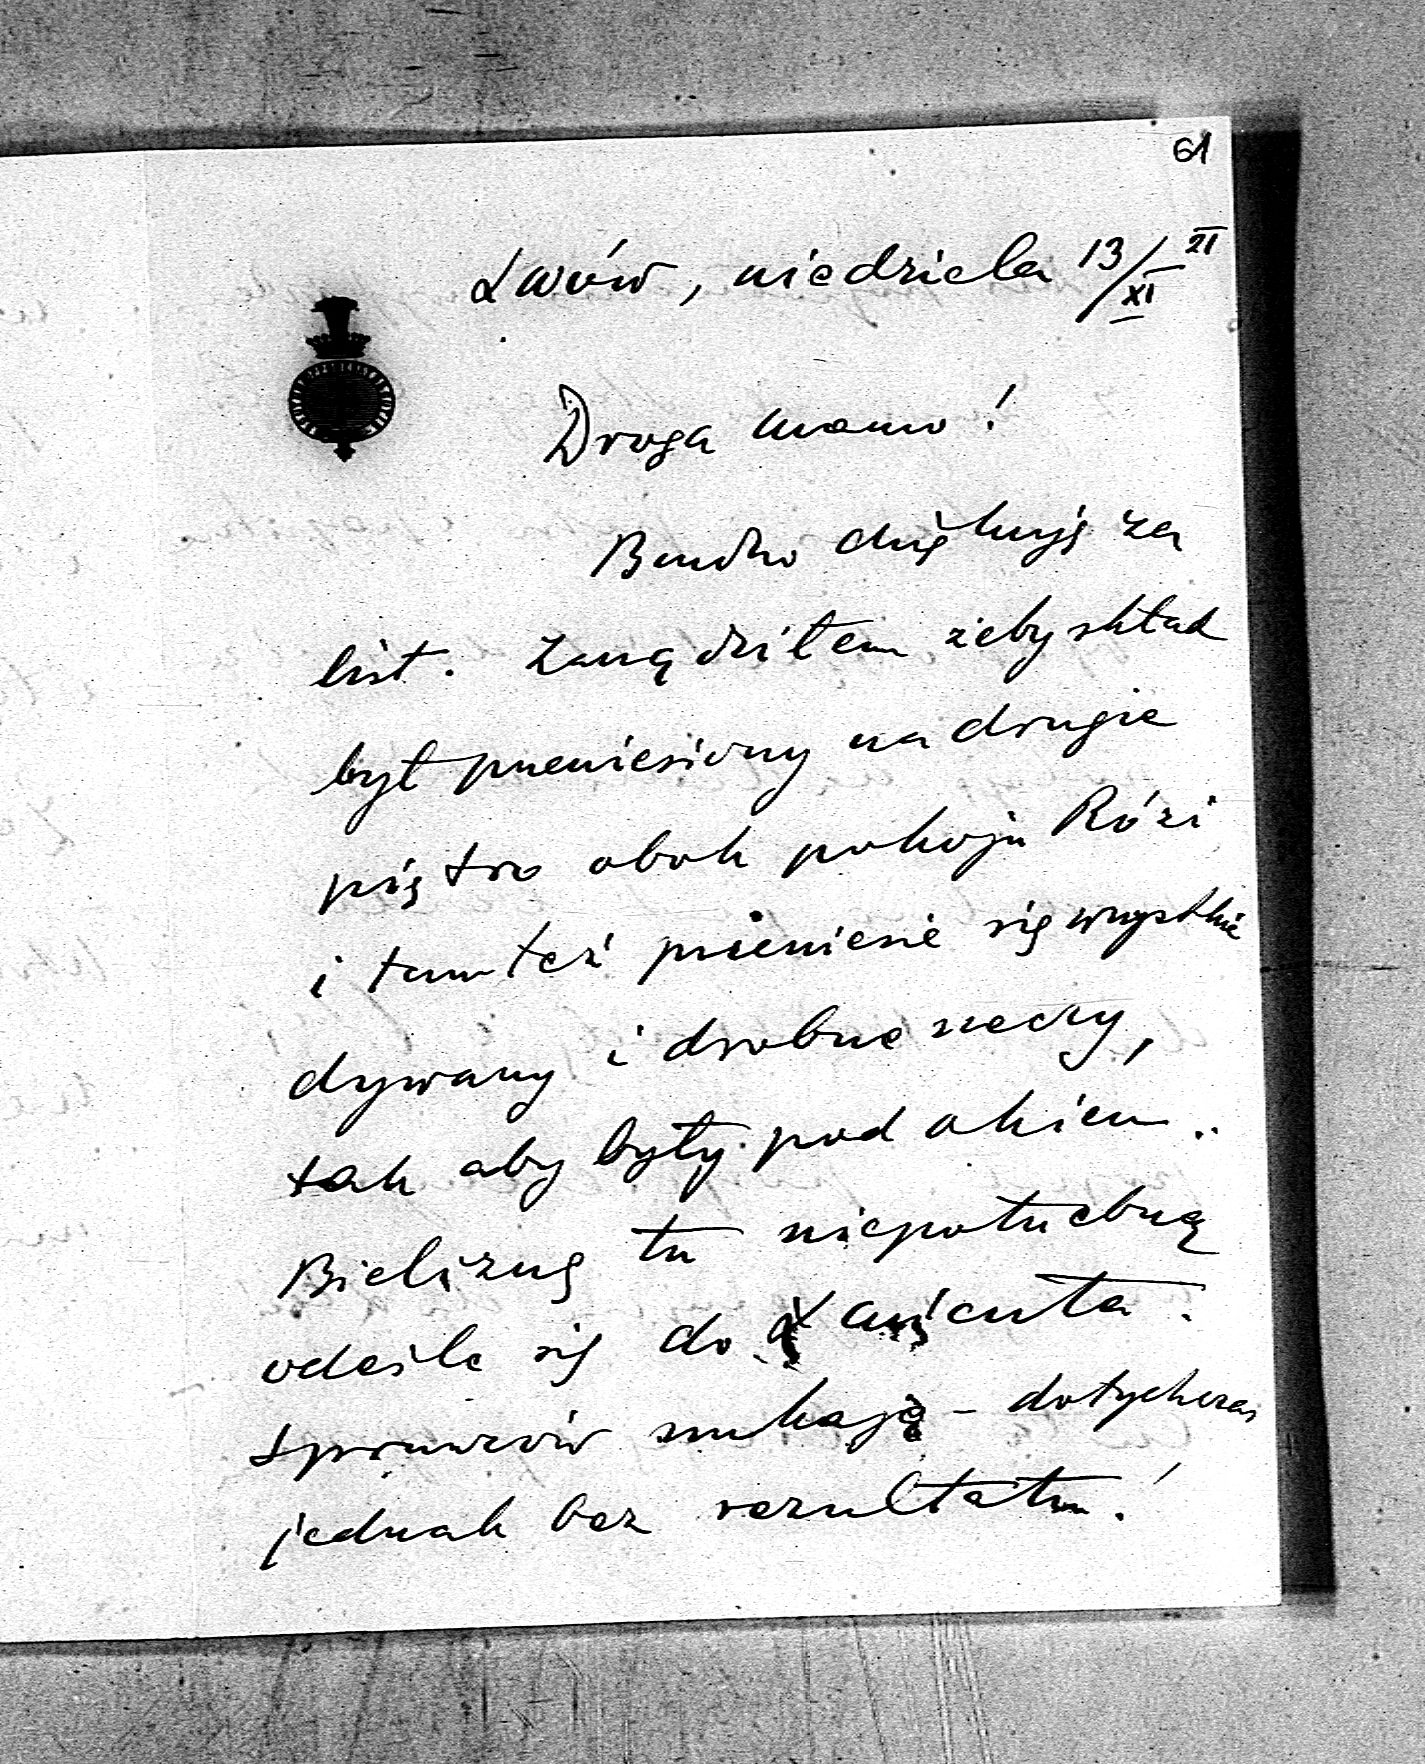 61
Lwów, niedziela 13/XI 21
Droga mamo!
Bardzo dziękuję za
list. Zarządziłem żeby skład
był przeniesiony na drugie
piętro obok pokoju Rózi
i tam też przeniesie się wszystkie
dywany i drobne rzeczy,
tak aby były pod okiem..
Bieliznę tu niepotrzebną
odeśle się do Łańcuta.
Sprawców szukają – dotychczas
jednak bez rezultatu!